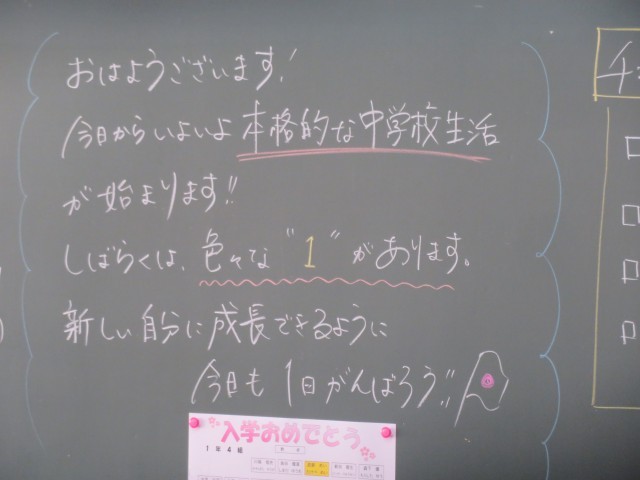 おはようございます!
今日からいよいよ本格的な中学校生活
が始まります!!
しばらくは、色々な"1"があります。
新しい自分に成長できるように
今日も1日がんばろう!!
チ
入学おめでとう
1年4組